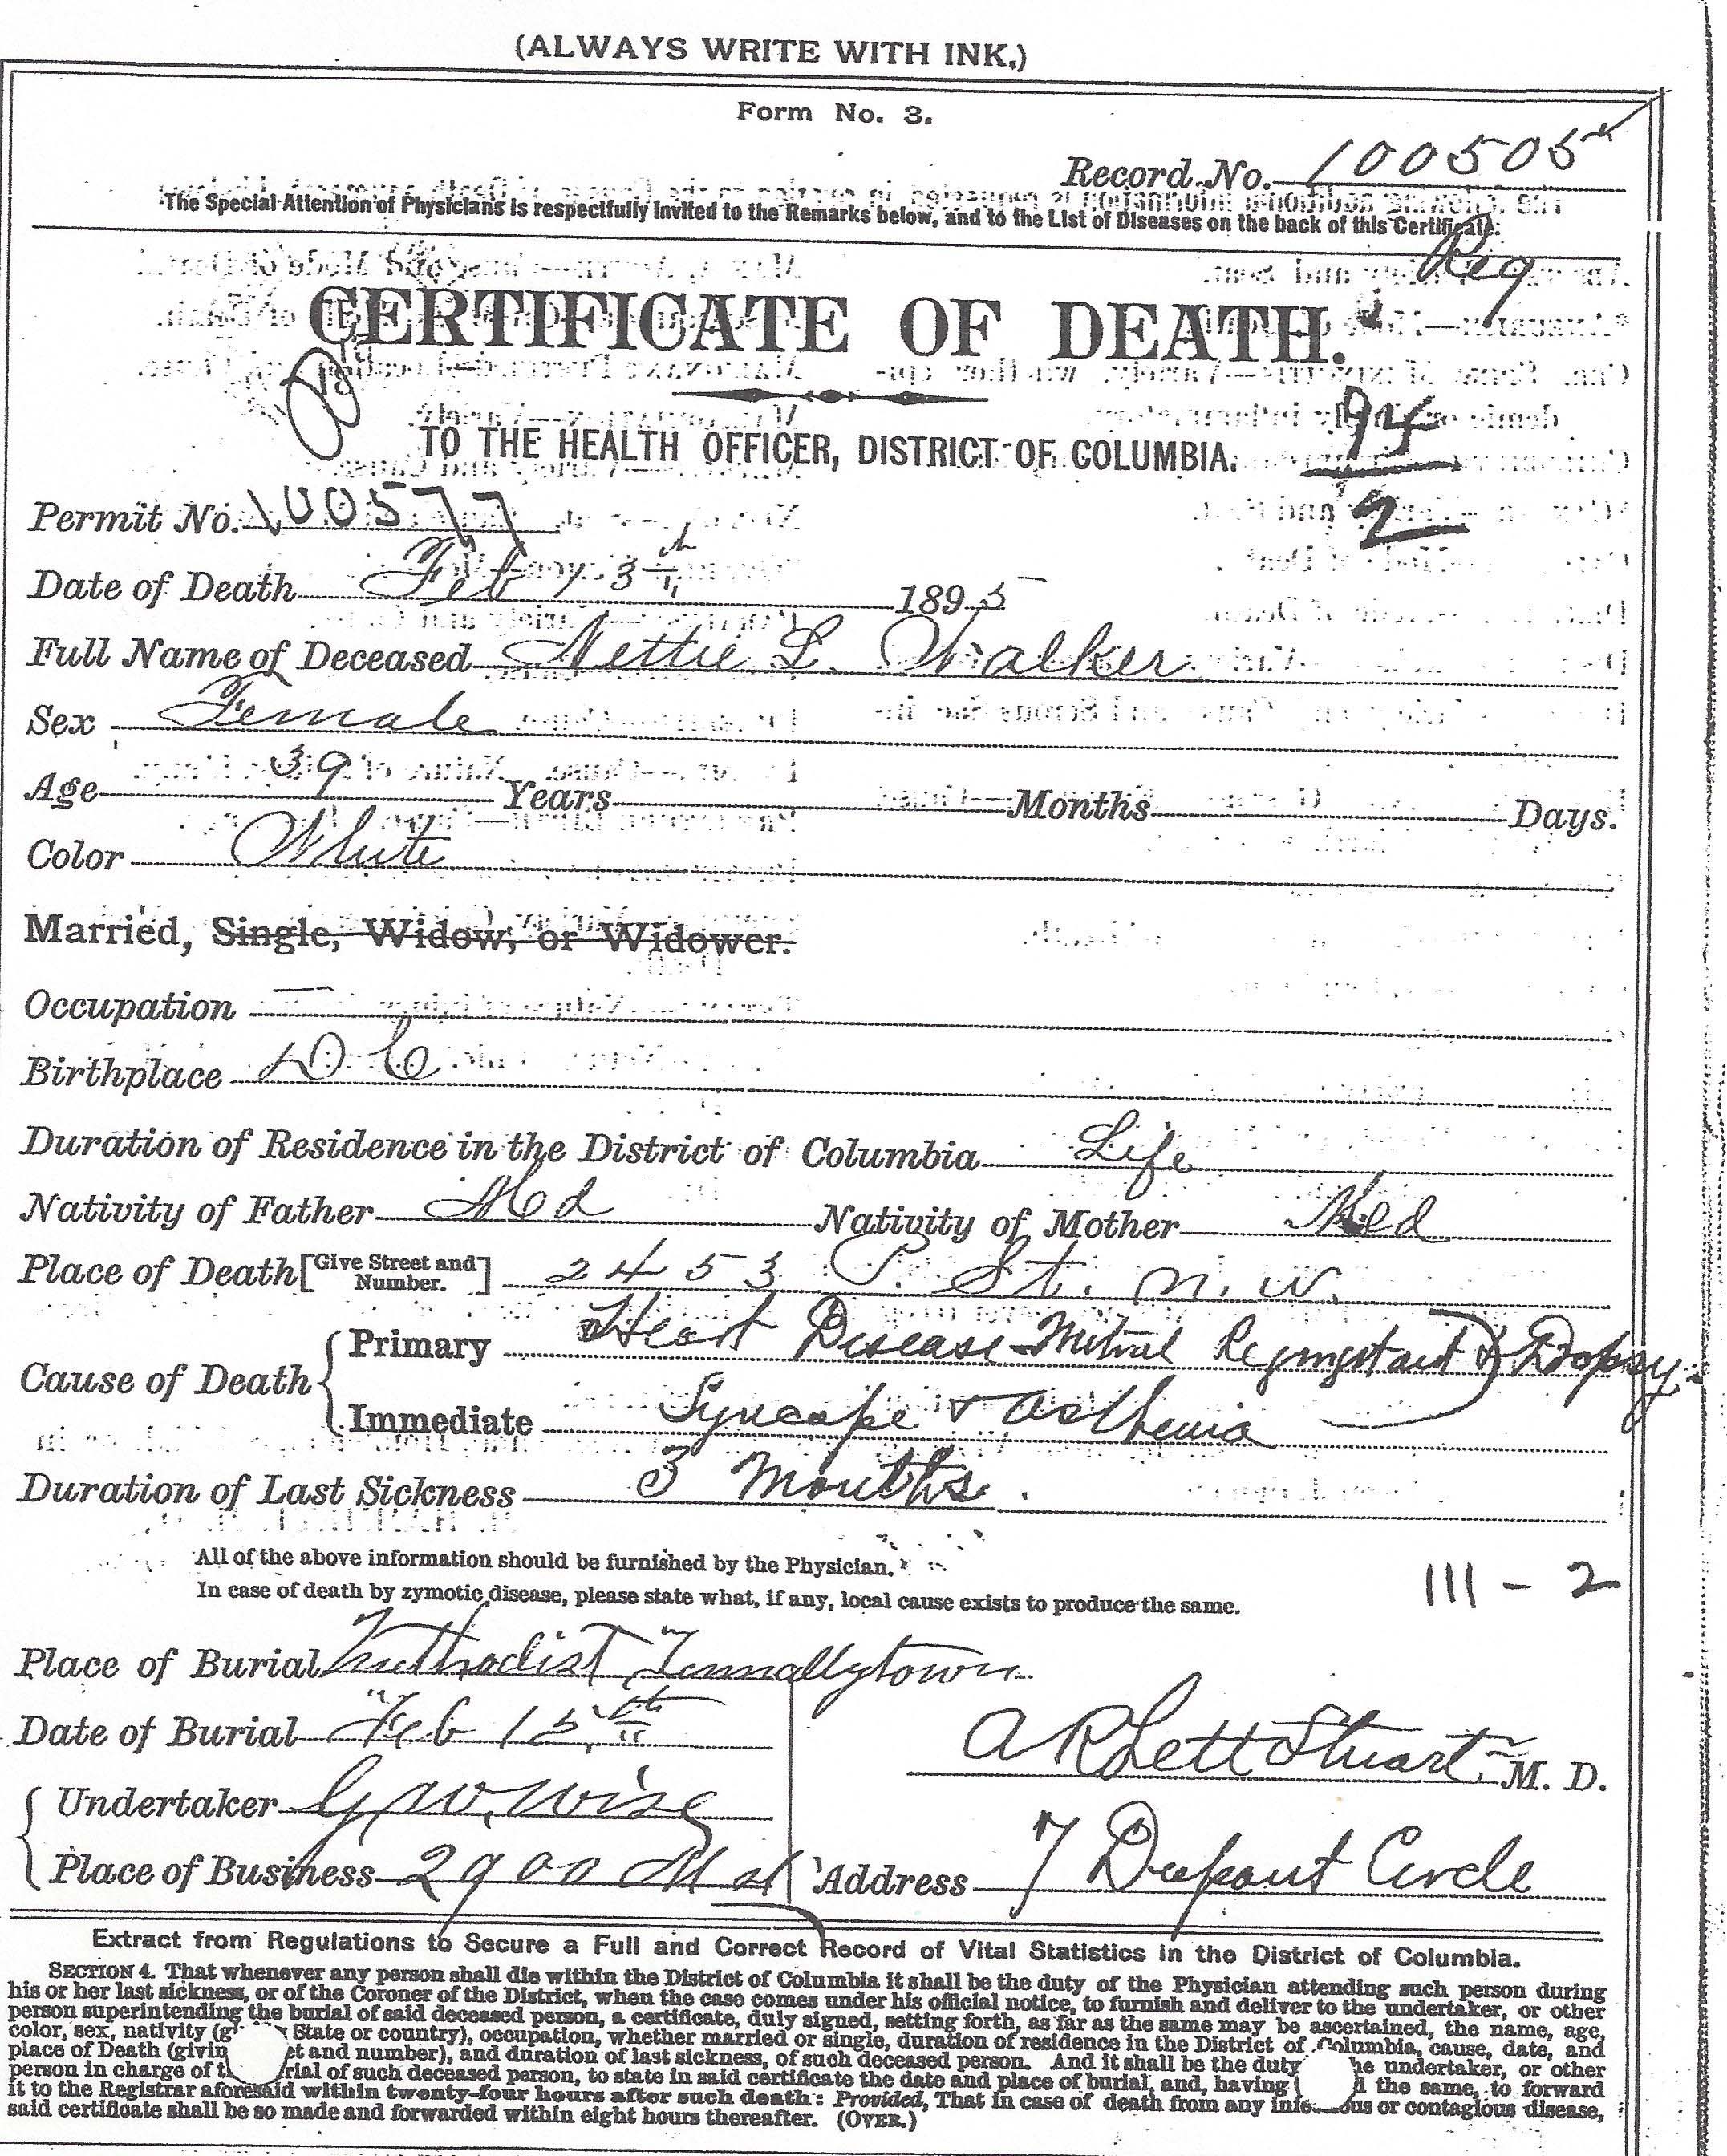 (ALWAYS WRITE WITH INK.)
Form No. 3.
Record No. 100505
The Special Attention of Physicians is respectfully invited to the Remarks below, and to the List of Diseases on the back of this Certificate.
Reg
CERTIFICATE OF DEATH.
94
2
TO THE HEALTH OFFICER, DISTRICT OF COLUMBIA.
Permit No. 100577
Date of Death Feb 13th 1895
Full Name of Deceased Nettie L. Walker
Sex Female
Age 39 Years Months Days.
Color White
Married, Single, Widow, or Widower.
Occupation —
Birthplace D C
Duration of Residence in the District of Columbia Life
Nativity of Father Md Nativity of Mother Md
Place of Death [Give Street and Number.] 2453 P. St. N. W.
Cause of Death { Primary Heart Disease - Mitral & Dropsy
Immediate Syncope & Asthenia
Duration of Last Sickness 3 Months.
All of the above information should be furnished by the Physician.
In case of death by zymotic disease, please state what, if any, local cause exists to produce the same.
III - 2
Place of Burial Methodist Tennallytown
Date of Burial Feb 15th
A Rhett Stuart M. D.
Undertaker G. W. Wise
Place of Business 2900 M st
Address 7 Dupont Circle
Extract from Regulations to Secure a Full and Correct Record of Vital Statistics in the District of Columbia.
SECTION 4. That whenever any person shall die within the District of Columbia it shall be the duty of the Physician attending such person during
his or her last sickness, or of the Coroner of the District, when the case comes under his official notice, to furnish and deliver to the undertaker, or other
person superintending the burial of said deceased person, a certificate, duly signed, setting forth, as far as the same may be ascertained, the name, age,
color, sex, nativity (g State or country), occupation, whether married or single, duration of residence in the District of Columbia, cause, date, and
place of Death (givin et and number), and duration of last sickness, of such deceased person. And it shall be the duty he undertaker, or other
person in charge of t rial of such deceased person, to state in said certificate the date and place of burial, and, having d the same, to forward
it to the Registrar aforesaid within twenty-four hours after such death: Provided, That in case of death from any infe ous or contagious disease,
said certificate shall be so made and forwarded within eight hours thereafter. (OVER.)